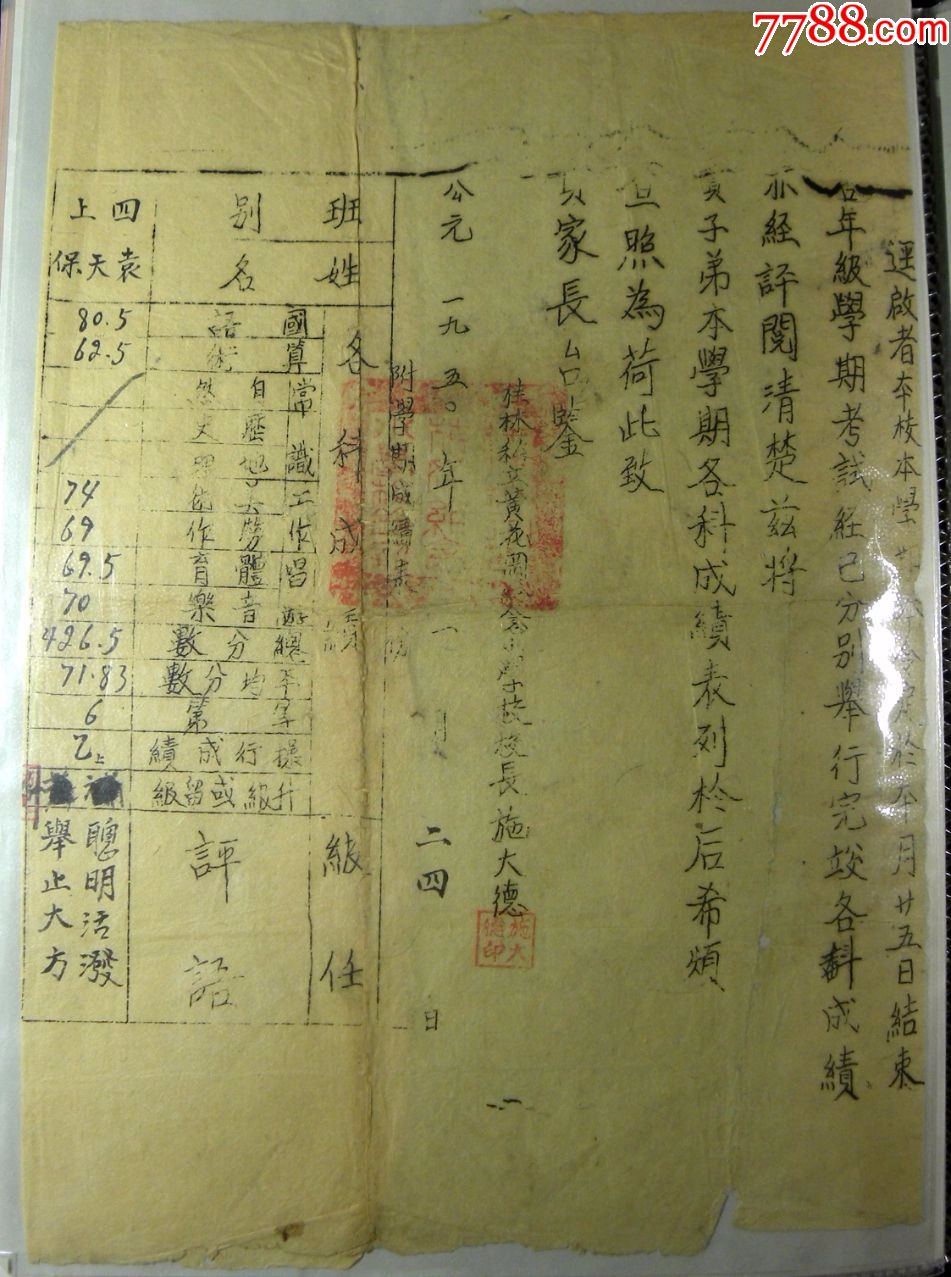 7788.com
逕啟者本校本學
於本月廿五日結束
各年級學期考試経已分別舉行完竣各科成績
亦經評閱清楚茲將
貴子弟本學期各科成績表列於后希煩
查照為荷此致
貴家長台鑒
桂林私立黃花崗紀念小學校校長施大德
施大德印
公元一九五〇年一月二四日
附學期成績表
班別
四上
姓名
袁天保
各科成績
國語
80.5
算術
62.5
常識
自然
歷史
地理
工作
勞作
74
69
體育
69.5
唱遊
音樂
70
總分數
426.5
平均分數
71.83
第
6
操行成績
乙上
升級或留級
級任評語
聰明活潑
舉止大方